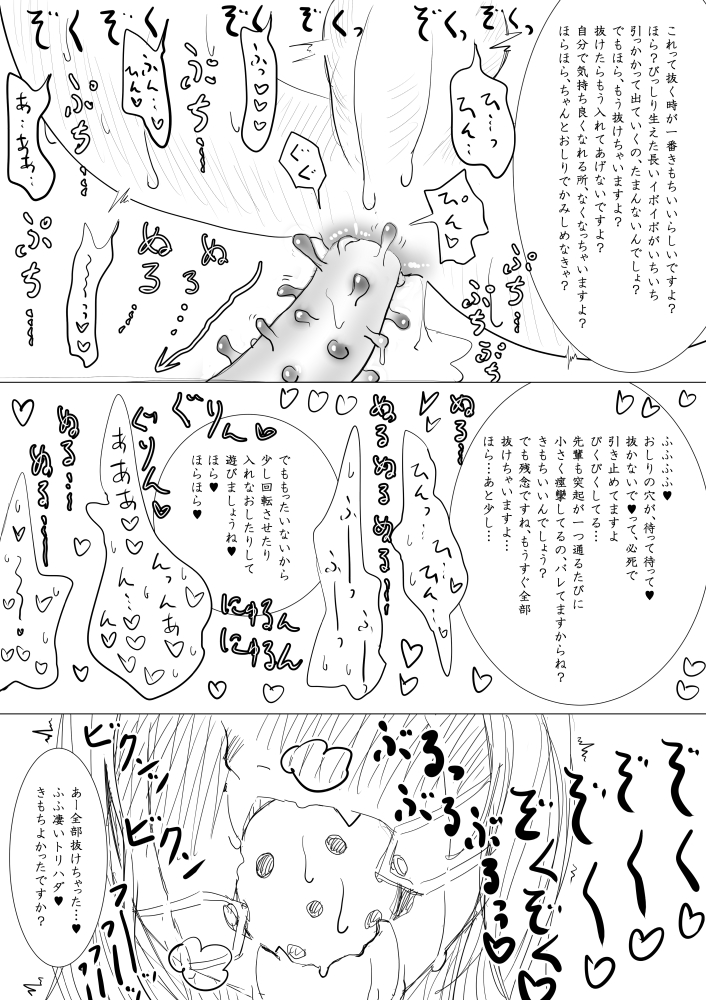 これって抜く時が一番きもちいいらしいですよ?
ほら?びっしり生えた長いイボイボがいちいち
引っかかって出ていくの、たまんないんでしょ?
でもほら、もう抜けちゃいますよ?
抜けたらもう入れてあげないですよ?
自分で気持ち良くなれる所、なくなっちゃいますよ?
ほらほら、ちゃんとおしりでかみしめなきゃ?
ぞくっ
ぞくっ
ぞくっ
ひ…っ
ひん…
ぴん♥
ぐぐ
ーふっ♥♥♥
ふん…
ひん♥
あ…ああ…
ぷち…
ぷち……
ぷち……
ぷちぷち
ぬる……
ぬる…
ふふふふ♥
おしりの穴が、待って待って♥
抜かないで♥って、必死で
引き止めてますよ
びくびくしてる…
先輩も突起が一つ通るたびに
小さく痙攣してるの、バレてますからね?
きもちいいんでしょう?
でも残念ですね、もうすぐ全部
抜けちゃいますよ…
ほら…あと少し…
ぬる…
ぬる…
ぬるぬる……
でももったいないから
少し回転させたり
入れなおしたりして
遊びましょうね♥
ほら♥
ほらほら♥
ぐりん♥
ぐりん
にゅるん
にゅるん
ふーっふーっ
あああ♥♥
んっんあ
ん…
ぬる…
ぬる…
ぞく〜♡
ぞく〜♡
ぞく〜♡
ぞくぞく
ぶるっ
ぶるぶるっ♥
ビクンッ
ビクン
あー全部抜けちゃった…♥
ふふ凄いトリハダ♥
きもちよかったですか?